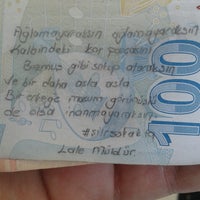 Ağlamayacaksın ağlamayacaksın
Kalbindeki kor parçasını
Buzmuş gibi söküp atacaksın
Ve bir daha asla asla
Bir erkeğe masum görünüşlü
de olsa inanmayacaksın
#siirsokakta
Lale Müldür
100